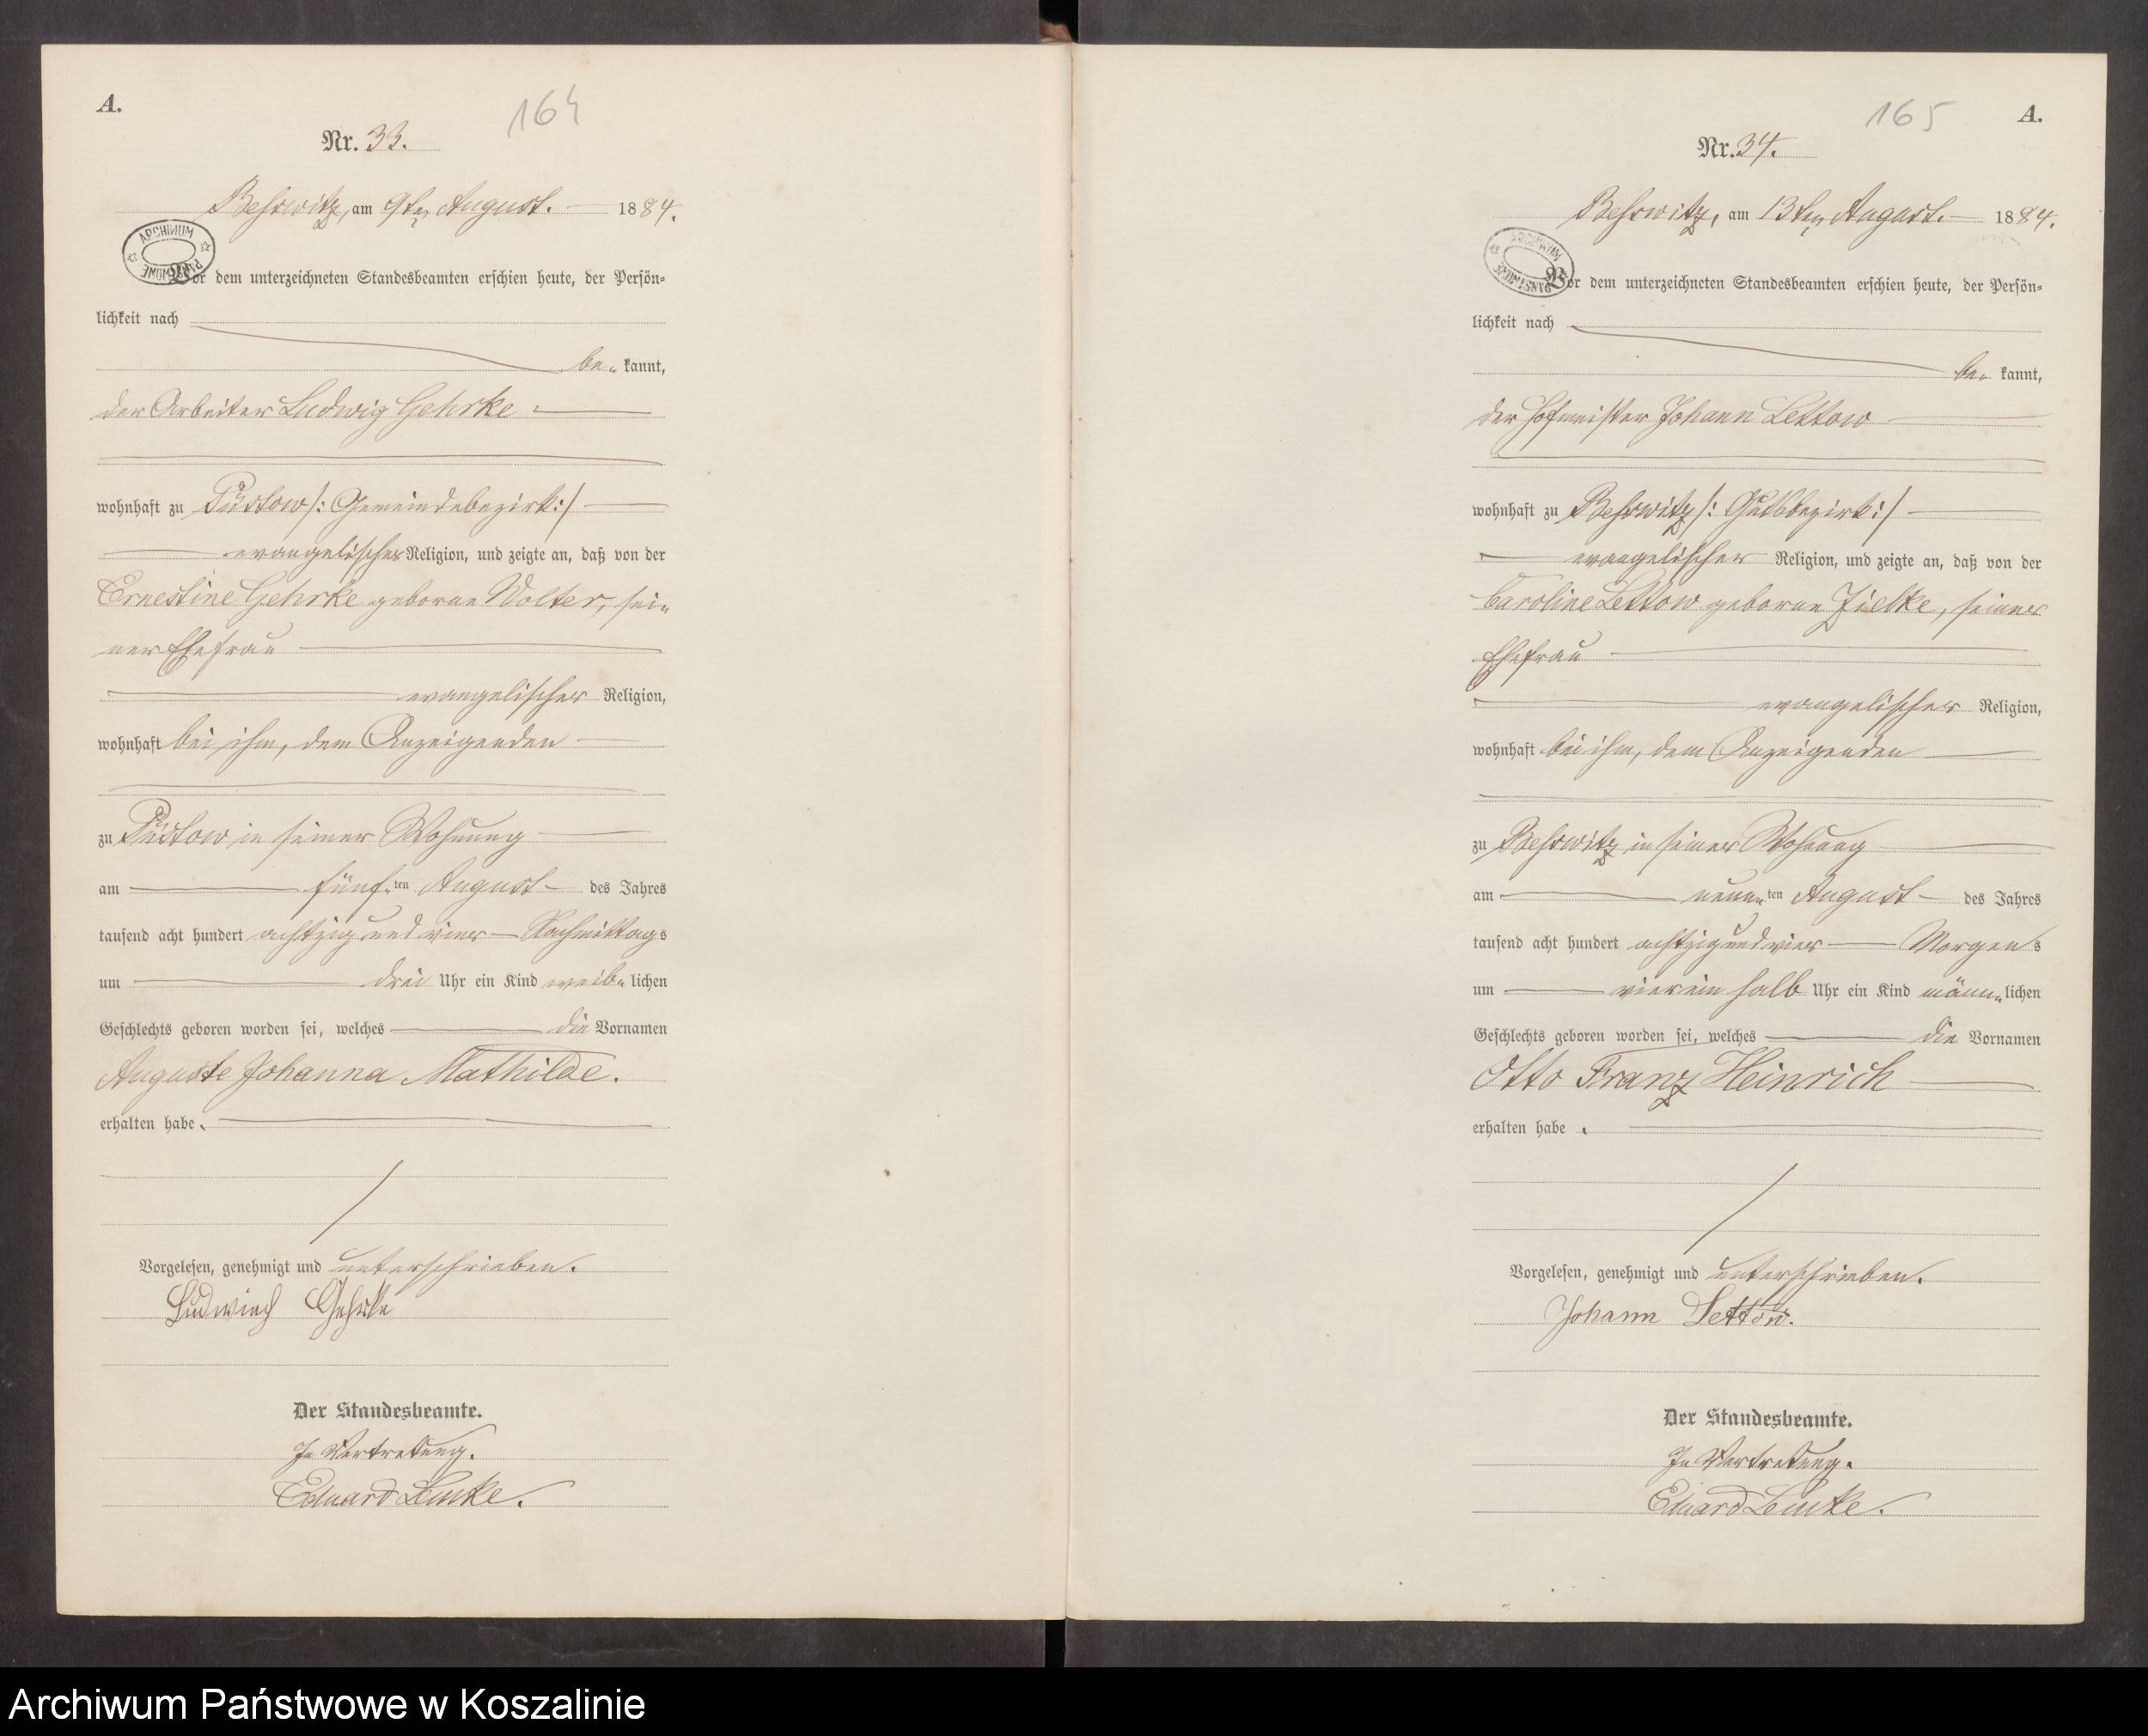 A.
164
Nr. 33.
Behrwitz, am 9ten August. 1884.
ARCHIWUM
Vor dem unterzeichneten Standesbeamten erschien heute, der Persön-
lichkeit nach
be- kannt,
der Arbeiter Ludwig Gehrke
wohnhaft zu Püstow /: Gemeindebezirk :/
evangelischer Religion, und zeigte an, daß von der
Ernestine Gehrke geborne Wolter, sei-
ner Ehefrau
evangelischer Religion,
wohnhaft bei ihm, dem Anzeigenden
zu Püstow in seiner Wohnung
am fünf-ten August des Jahres
tausend acht hundert achtzig und vier Nachmittags
um drei Uhr ein Kind weib- lichen
Geschlechts geboren worden sei, welches die Vornamen
Auguste Johanna Mathilde.
erhalten habe.
Vorgelesen, genehmigt und unterschrieben.
Ludwich Gehrke
Der Standesbeamte.
In Vertretung.
Eduard Lemke.
165
A.
Nr. 34.
Behrwitz, am 13ten August. 1884.
ARCHIWUM
Vor dem unterzeichneten Standesbeamten erschien heute, der Persön-
lichkeit nach
be- kannt,
der Hofmeister Johann Lettow
wohnhaft zu Behrwitz /: Gutsbezirk :/
evangelischer Religion, und zeigte an, daß von der
Caroline Lettow geborne Zielke, seiner
Ehefrau
evangelischer Religion,
wohnhaft bei ihm, dem Anzeigenden
zu Behrwitz in seiner Wohnung
am neun-ten August des Jahres
tausend acht hundert achtzig und vier Morgens
um vier ein halb Uhr ein Kind männ-lichen
Geschlechts geboren worden sei, welches die Vornamen
Otto Franz Heinrich
erhalten habe.
Vorgelesen, genehmigt und unterschrieben.
Johann Lettow.
Der Standesbeamte.
In Vertretung.
Eduard Lemke.
Archiwum Państwowe w Koszalinie